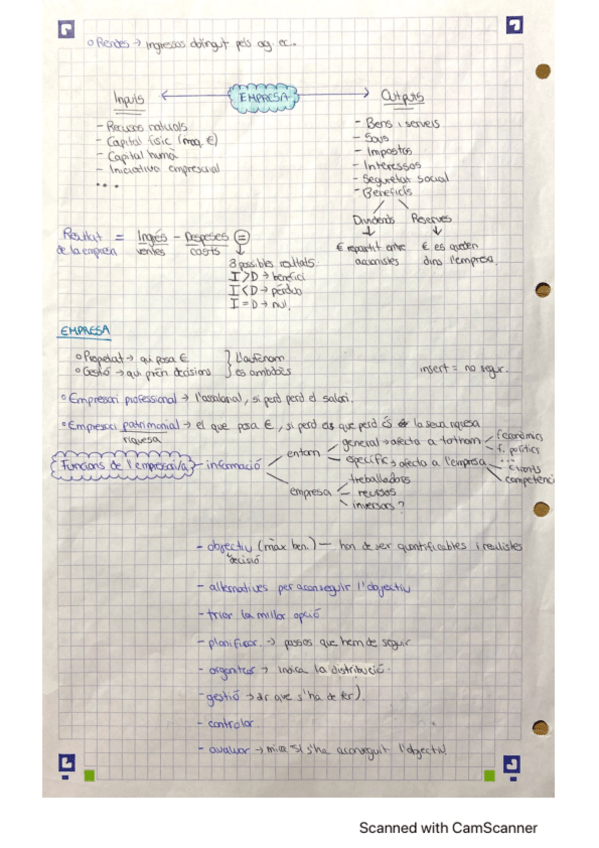 o Rendes → ingressos obtingut pels ag. ec.
Inputs ← EMPRESA → Outputs
- Recursos naturals
- Capital físic (maq, €)
- Capital humà
- Iniciativa empresarial
...
- Bens i serveis
- Sous
- Impostos
- Interessos
- Seguretat social
- Beneficis
Dividends Reserves
€ repartit entre accionistes
€ es queden dins l'empresa.
Resultat de la empresa = Ingrés - Despeses =
ventes costs
3 possibles resultats:
I > D → benefici
I < D → pèrdua
I = D → nul.
EMPRESA
o Propietat → qui posa €
o Gestió → qui prèn decisions
L'autònom
és ambdòs
insert = no segur.
o Empresari professional → l'assalariat, si perd perd el salari.
o Empresari patrimonial → el que posa €, si perd el que perd és la seva riquesa
riquesa
Funcions de l'empresari/a - informació
entorn
general → afecta a tothom
f. econòmics
f. polítics
...
específic → afecta a l'empresa
clients
competència
empresa
treballadors
recursos
inversors?
- objectiu (màx ben.) — han de ser quantificables i realistes
decisió
- alternatives per aconseguir l'objectiu
- triar la millor opció
- planificar → passos que hem de seguir
- organitzar → indica la distribució.
- gestió → dir que s'ha de fer).
- controlar
- avaluar → mira si s'ha aconseguit l'objectiu.
Scanned with CamScanner